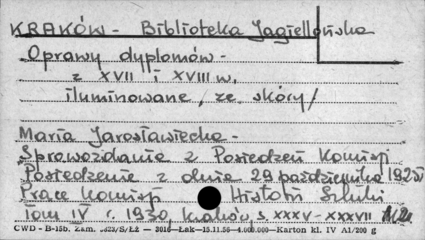 KRAKÓW - Biblioteka Jagiellońska
Oprawy dyplomów -
z XVII i XVIII w.
iluminowane, ze skóry/
Maria Jarosławiecka -
Sprawozdanie z Posiedzeń Komisji
Posiedzenie z dnia 29 października 1925
Prace Komisji Historii Sztuki
Tom IV r. 1930, Kraków, s. XXXV-XXXVII
CWD - B-15b. Zam. 523/S/ŁŻ — 3016—Łak—15.11.56—4.000.000—Karton kl. IV A1/200 g